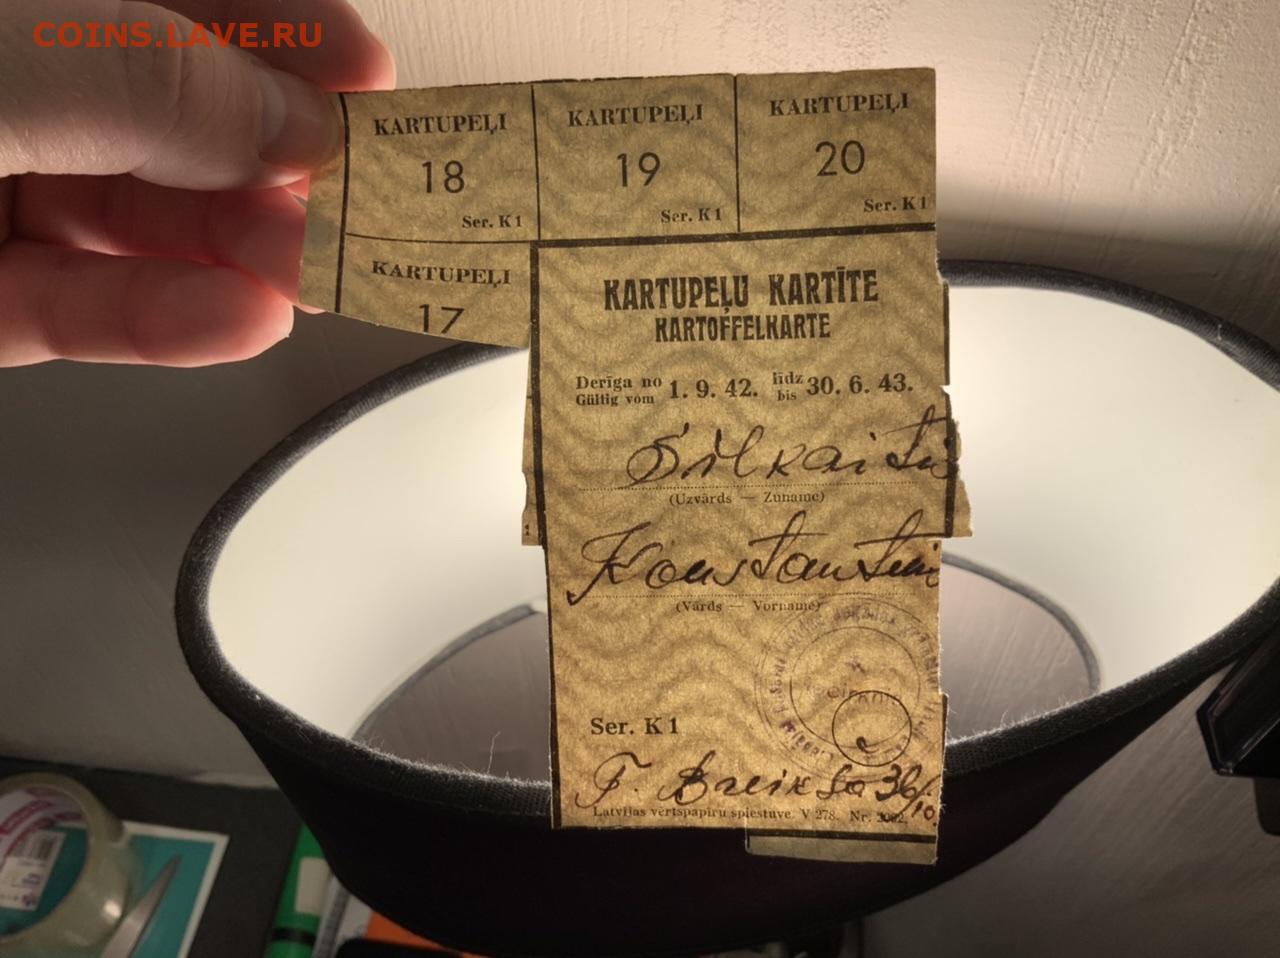 COINS.LAVE.RU
KARTUPEĻI
18
Ser. K 1
KARTUPEĻI
19
Ser. K 1
KARTUPEĻI
20
Ser. K 1
KARTUPEĻI
17
KARTUPEĻU KARTĪTE
KARTOFFELKARTE
Derīga no 1. 9. 42. līdz 30. 6. 43.
Gültig vom bis
(Uzvārds — Zuname)
Konstantin
(Vārds — Vorname)
Ser. K 1
Latvijas vērtspapīru spiestuve. V 278. Nr.